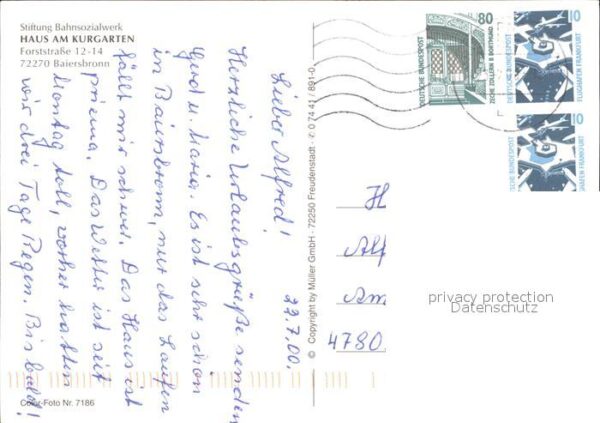 Stiftung Bahnsozialwerk
HAUS AM KURGARTEN
Forststraße 12-14
72270 Baiersbronn
22.7.00.
Lieber Alfred!
Herzliche Urlaubsgrüße senden
u. Maria. Es ist sehr schön
in Baiersbronn, nur das Laufen
fällt mir schwer. Das Haus ist
prima. Das Wetter ist seit
Montag toll, vorher hatten
wir drei Tage Regen. Bis bald!
Color-Foto Nr. 7186
© Copyright by Müller GmbH · 72250 Freudenstadt · ✆ 0 74 41 / 891-0
80
DEUTSCHE BUNDESPOST
ZECHE ZOLLERN II DORTMUND
10
DEUTSCHE BUNDESPOST
FLUGHAFEN FRANKFURT
10
SCHE BUNDESPOST
HAFEN FRANKFURT
H
Alf
Am
4780
privacy protection
Datenschutz